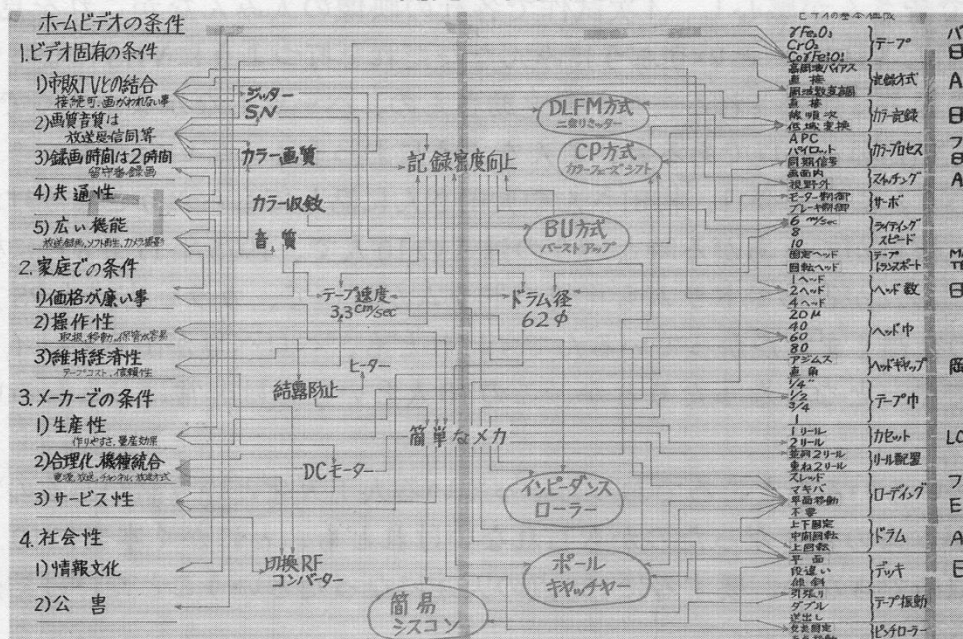 ホームビデオの条件
1.ビデオ固有の条件
1)市販TVとの結合
接続可.画がわれない事
2)画質音質は
放送受信同等
3)録画時間は2時間
留守番録画
4)共通性
5)広い機能
放送録画,ソフト再生,カメラ撮影
2.家庭での条件
1)価格が廉い事
2)操作性
取扱,移動,保管が容易
3)維持経済性
テープコスト,信頼性
3.メーカーでの条件
1)生産性
作りやすさ,量産効果
2)合理化.機種統合
電源,放送,チャンネル,放送方式
3)サービス性
4.社会性
1)情報文化
2)公害
ジッター
S/N
カラー画質
カラー収斂
音質
記録密度向上
テープ速度
3,3cm/sec
ドラム径
62φ
ヒーター
結露防止
簡単なメカ
DCモーター
切換RF
コンバーター
簡易
シスコン
DLFM方式
二重リミッター
CP方式
カラーフェーズシフト
BU方式
バーストアップ
インピーダンス
ローラー
ポール
キャッチャー
ビデオの基本
γFe2O3
CrO2
テープ
高周波バイアス
直接
周波数変調
記録方式
直接
線順次
低域変換
カラー記録
APC
パイロット
同期信号
カラープロセス
画面内
視野外
スイッチング
モーター制御
ブレーキ制御
サーボ
6 m/sec
8
10
ライティング
スピード
固定ヘッド
回転ヘッド
テープ
トランスポート
1ヘッド
2ヘッド
4ヘッド
ヘッド数
20μ
40
60
80
ヘッド巾
アジムス
直角
ヘッドギャップ
1/4"
1/2
3/4
1
テープ巾
1リール
2リール
カセット
並列2リール
重ね2リール
リール配置
スレッド
マキバ
平面移動
不要
ローディング
上下固定
中間回転
上回転
ドラム
平面
段違い
傾斜
デッキ
引張り
ダブル
送出し
テープ振動
ピンチローラー